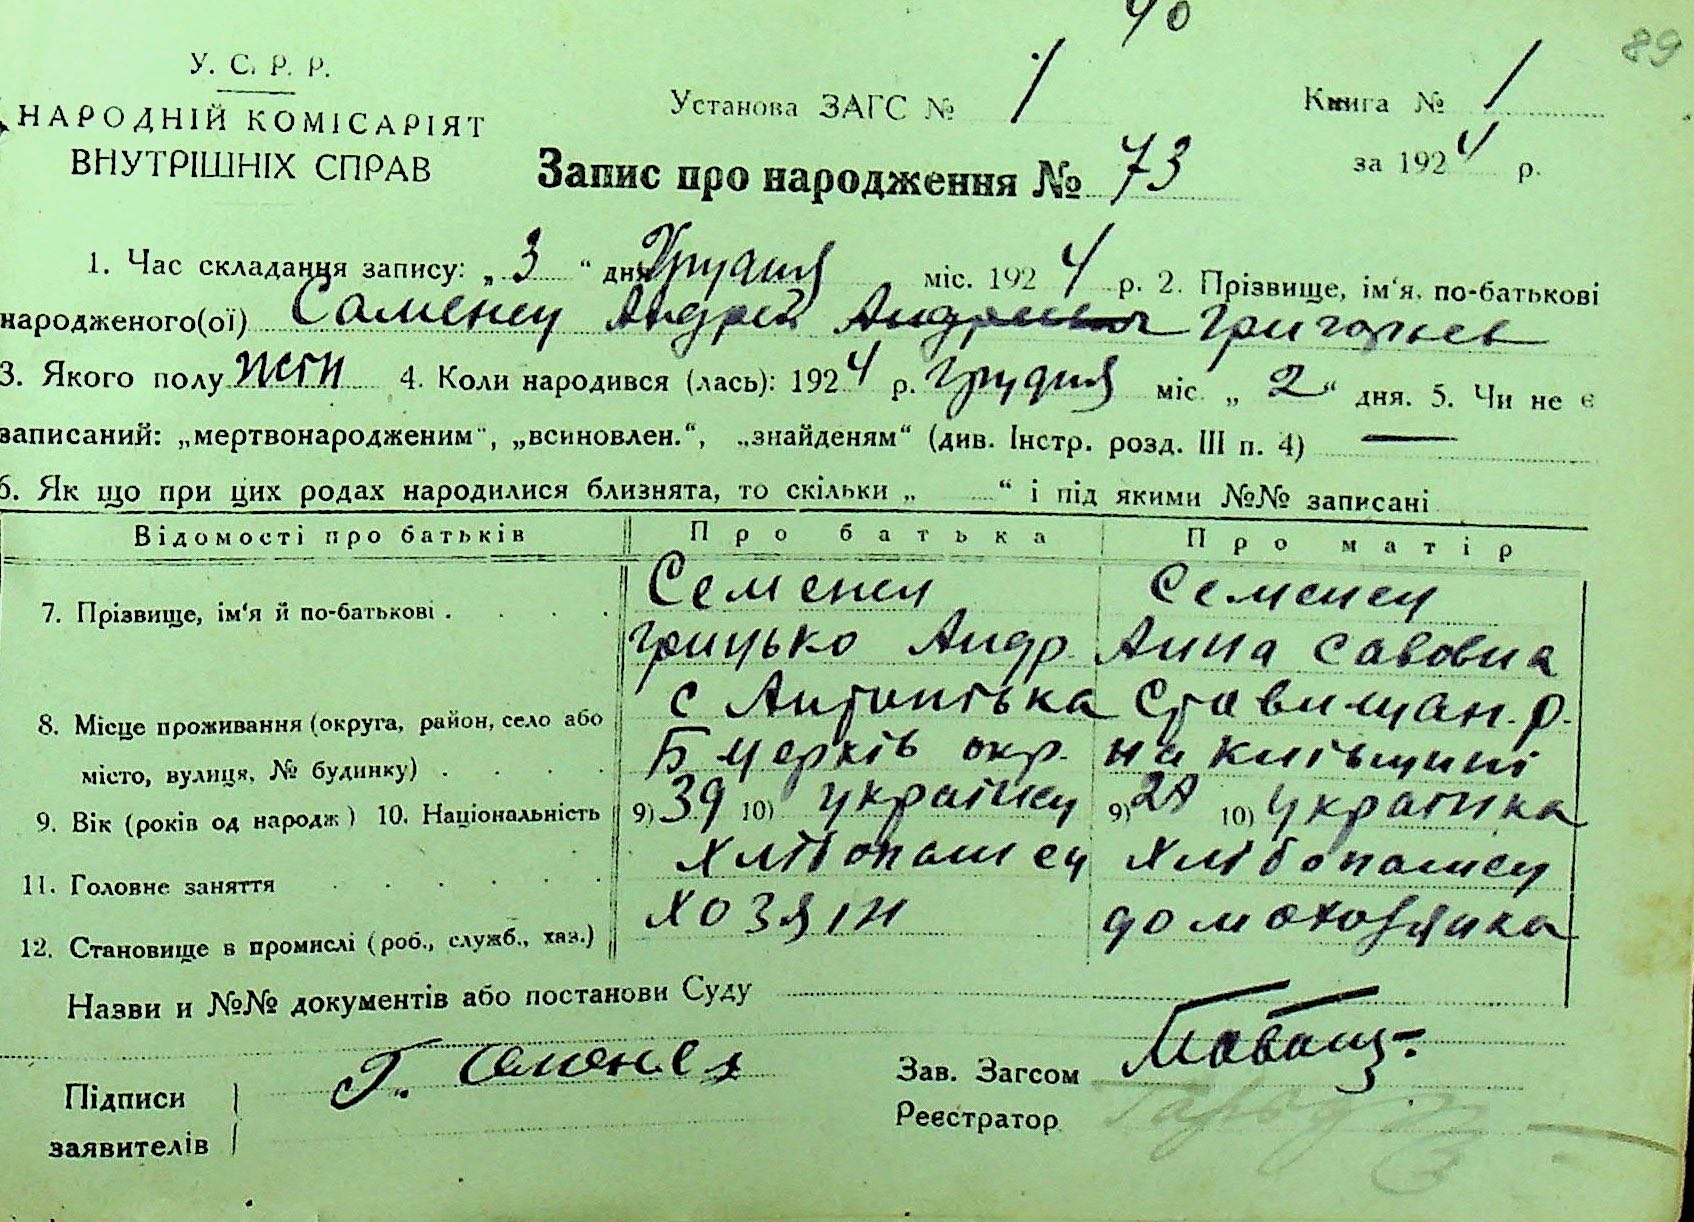 40
89
У. С. Р. Р.
НАРОДНІЙ КОМІСАРІЯТ
ВНУТРІШНІХ СПРАВ
Установа ЗАГС № 1
Книга № 1
за 1924 р.
Запис про народження № 73
1. Час складання запису: „ 3 “ дня Грудня міс. 1924 р. 2. Прізвище, ім‘я, по-батькові
народженого(ої) Саменец Андрей Григорьев
3. Якого полу 4. Коли народився (лась): 1924 р. грудня міс. „ 2 “ дня. 5. Чи не є
записаний: „мертвонародженим“, „всиновлен.“, „знайденям“ (див. Інстр. розд. III п. 4) —
6. Як що при цих родах народилися близнята, то скільки „ “ і під якими №№ записані
Відомості про батьків Про батька Про матір
7. Прізвище, ім‘я й по-батькові . Семенец Семенец
Грицько Андр. Анна Савовна
8. Місце проживання (округа, район, село або с Антонівка Ставищан. р.
місто, вулиця, № будинку) . Б Церків окр. на Київщині
9. Вік (років од народж) 10. Національність 9) 39 10) українец 9) 10) українка
11. Головне заняття хлібопашец хлібопашец
12. Становище в промислі (роб., служб., хаз.) хозяін домохозяика
Назви и №№ документів або постанови Суду
Підписи
заявителів
Г. Семенец
Зав. Загсом
Реєстратор